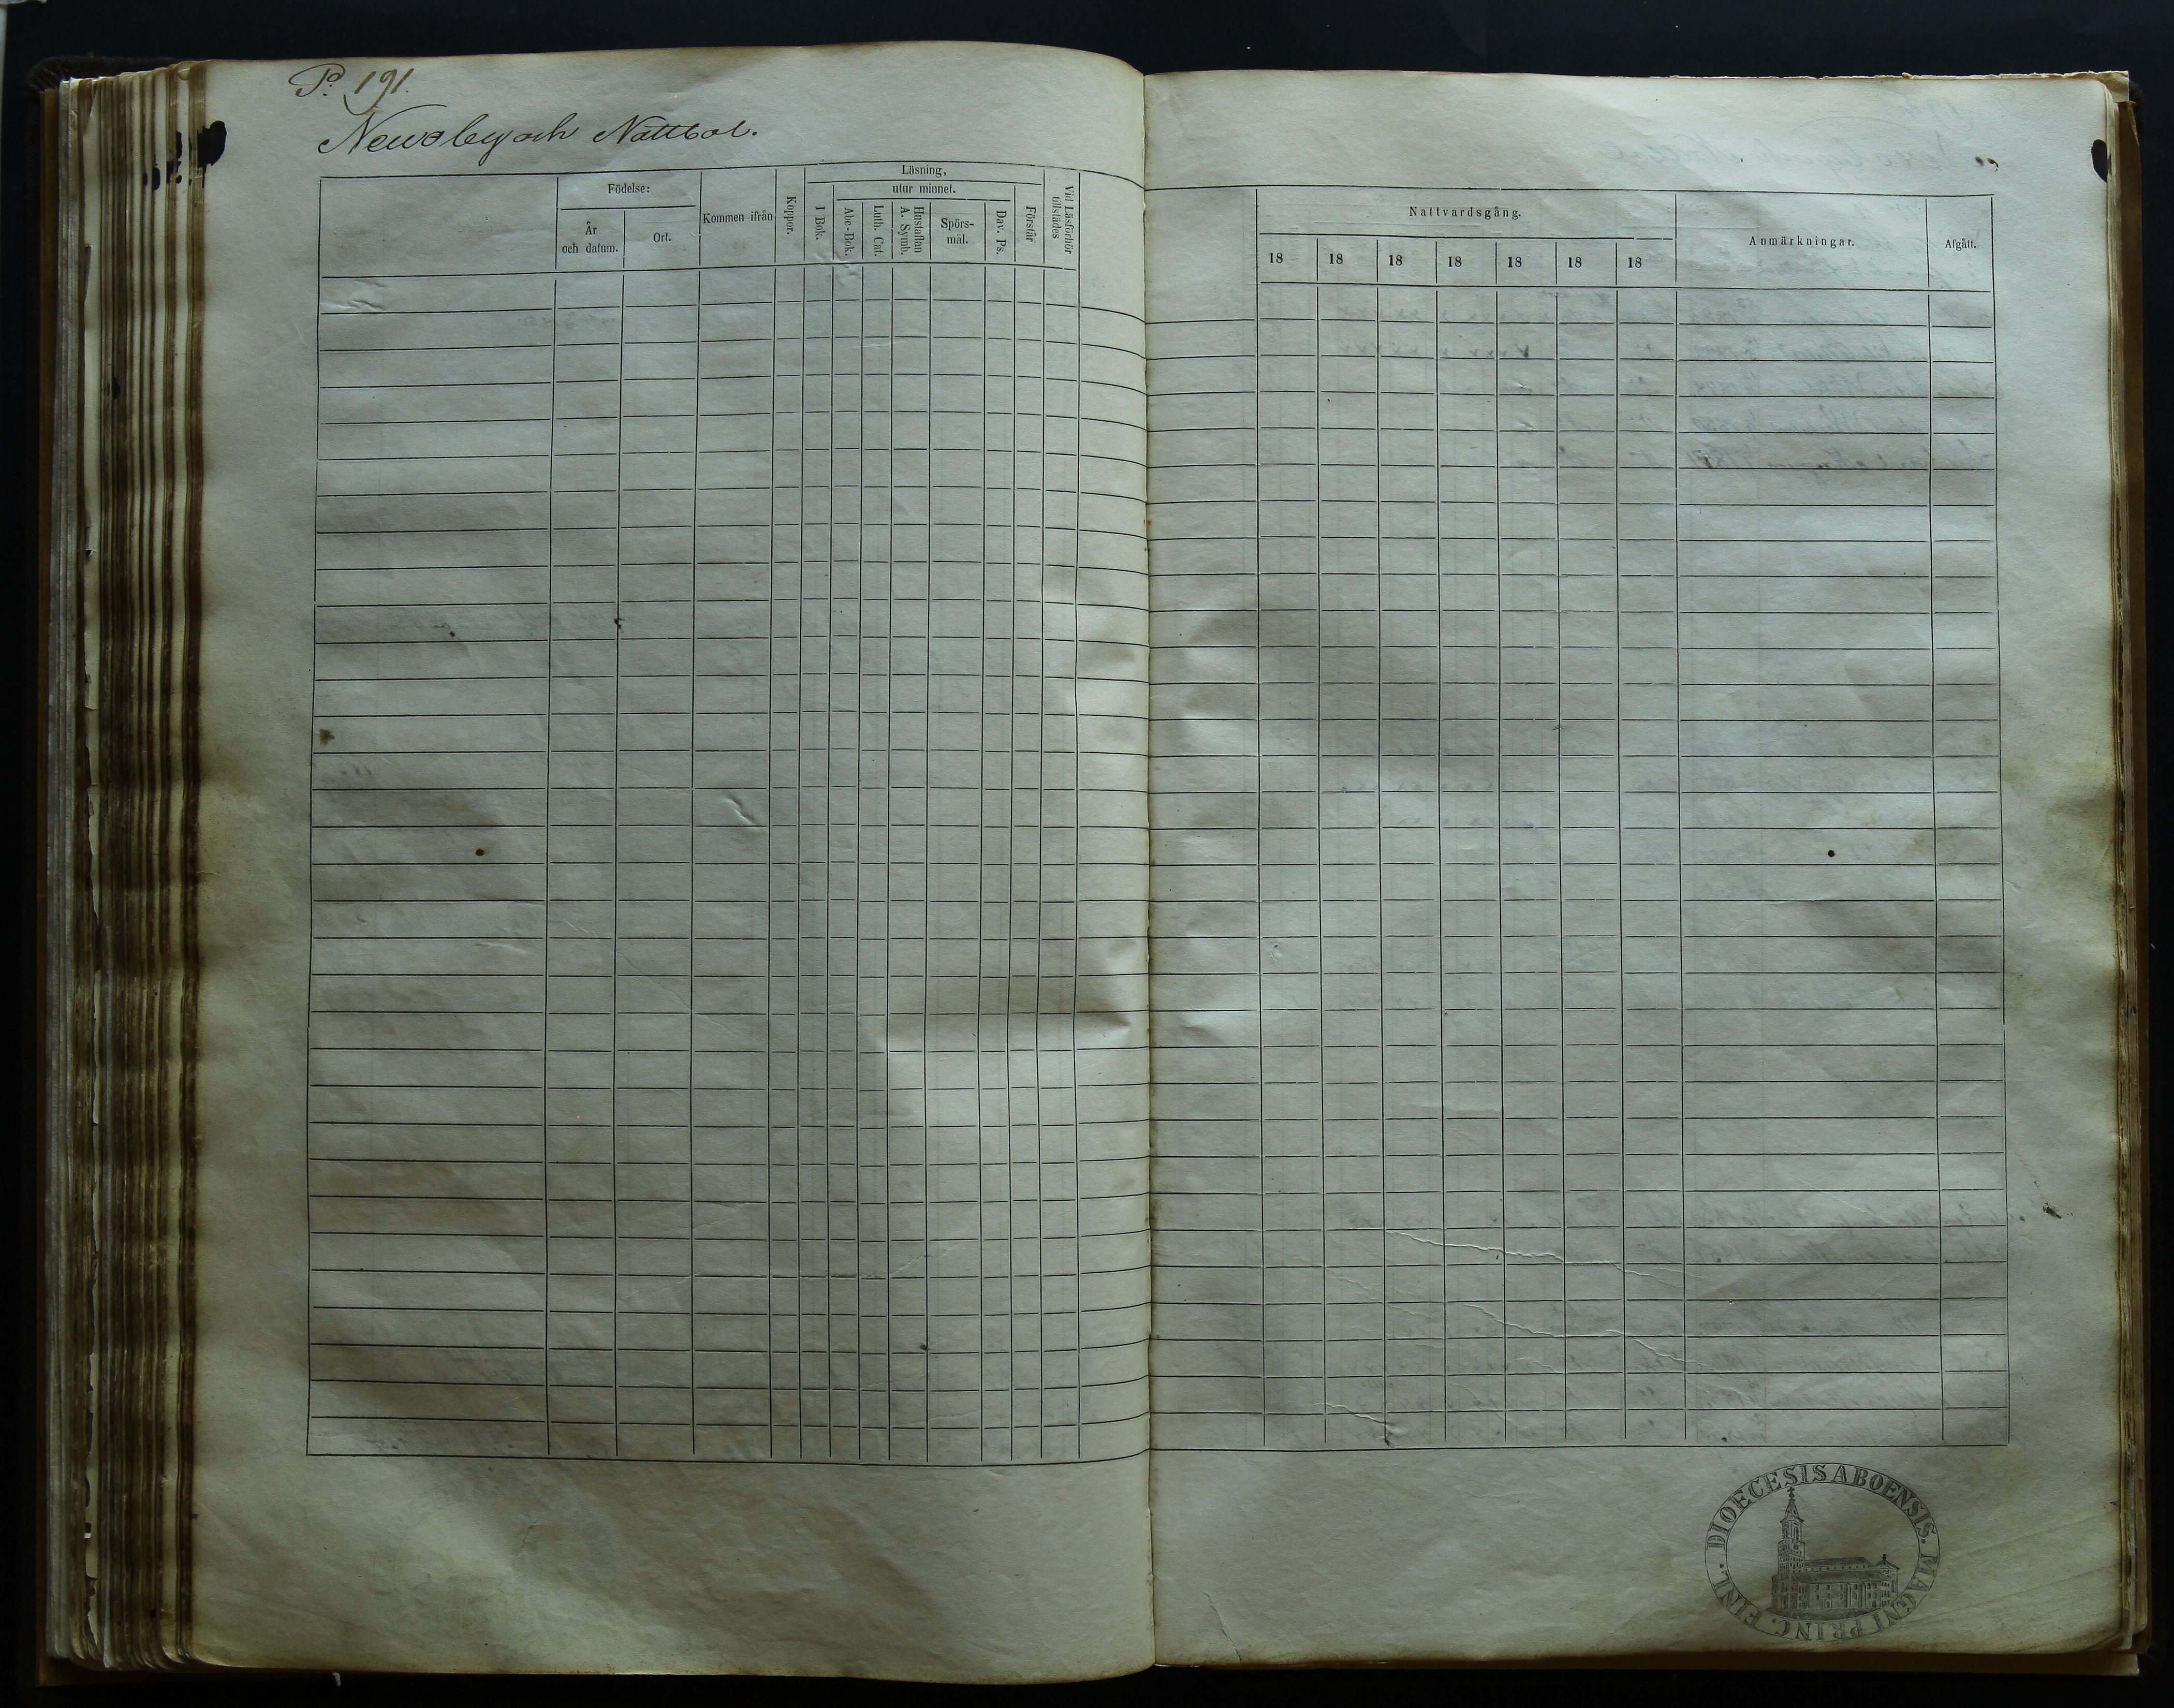 P. 191.
Newoby och Nattbol.
Födelse:
År
och datum.
Ort.
Kommen ifrån
Koppor.
Läsning,
utur minnet.
I Bok.
Abc-Bok.
Luth. Cat.
Hustaflan
A. Symb.
Spörs-
mål.
Dav. Ps.
Förstår
Vid Läsförhör
tillstädes
Nattvardsgång.
18 18 18 18 18 18 18
Anmärkningar.
Afgått.
DIOECESIS ABOENSIS. MAGNI PRINC. FINL.